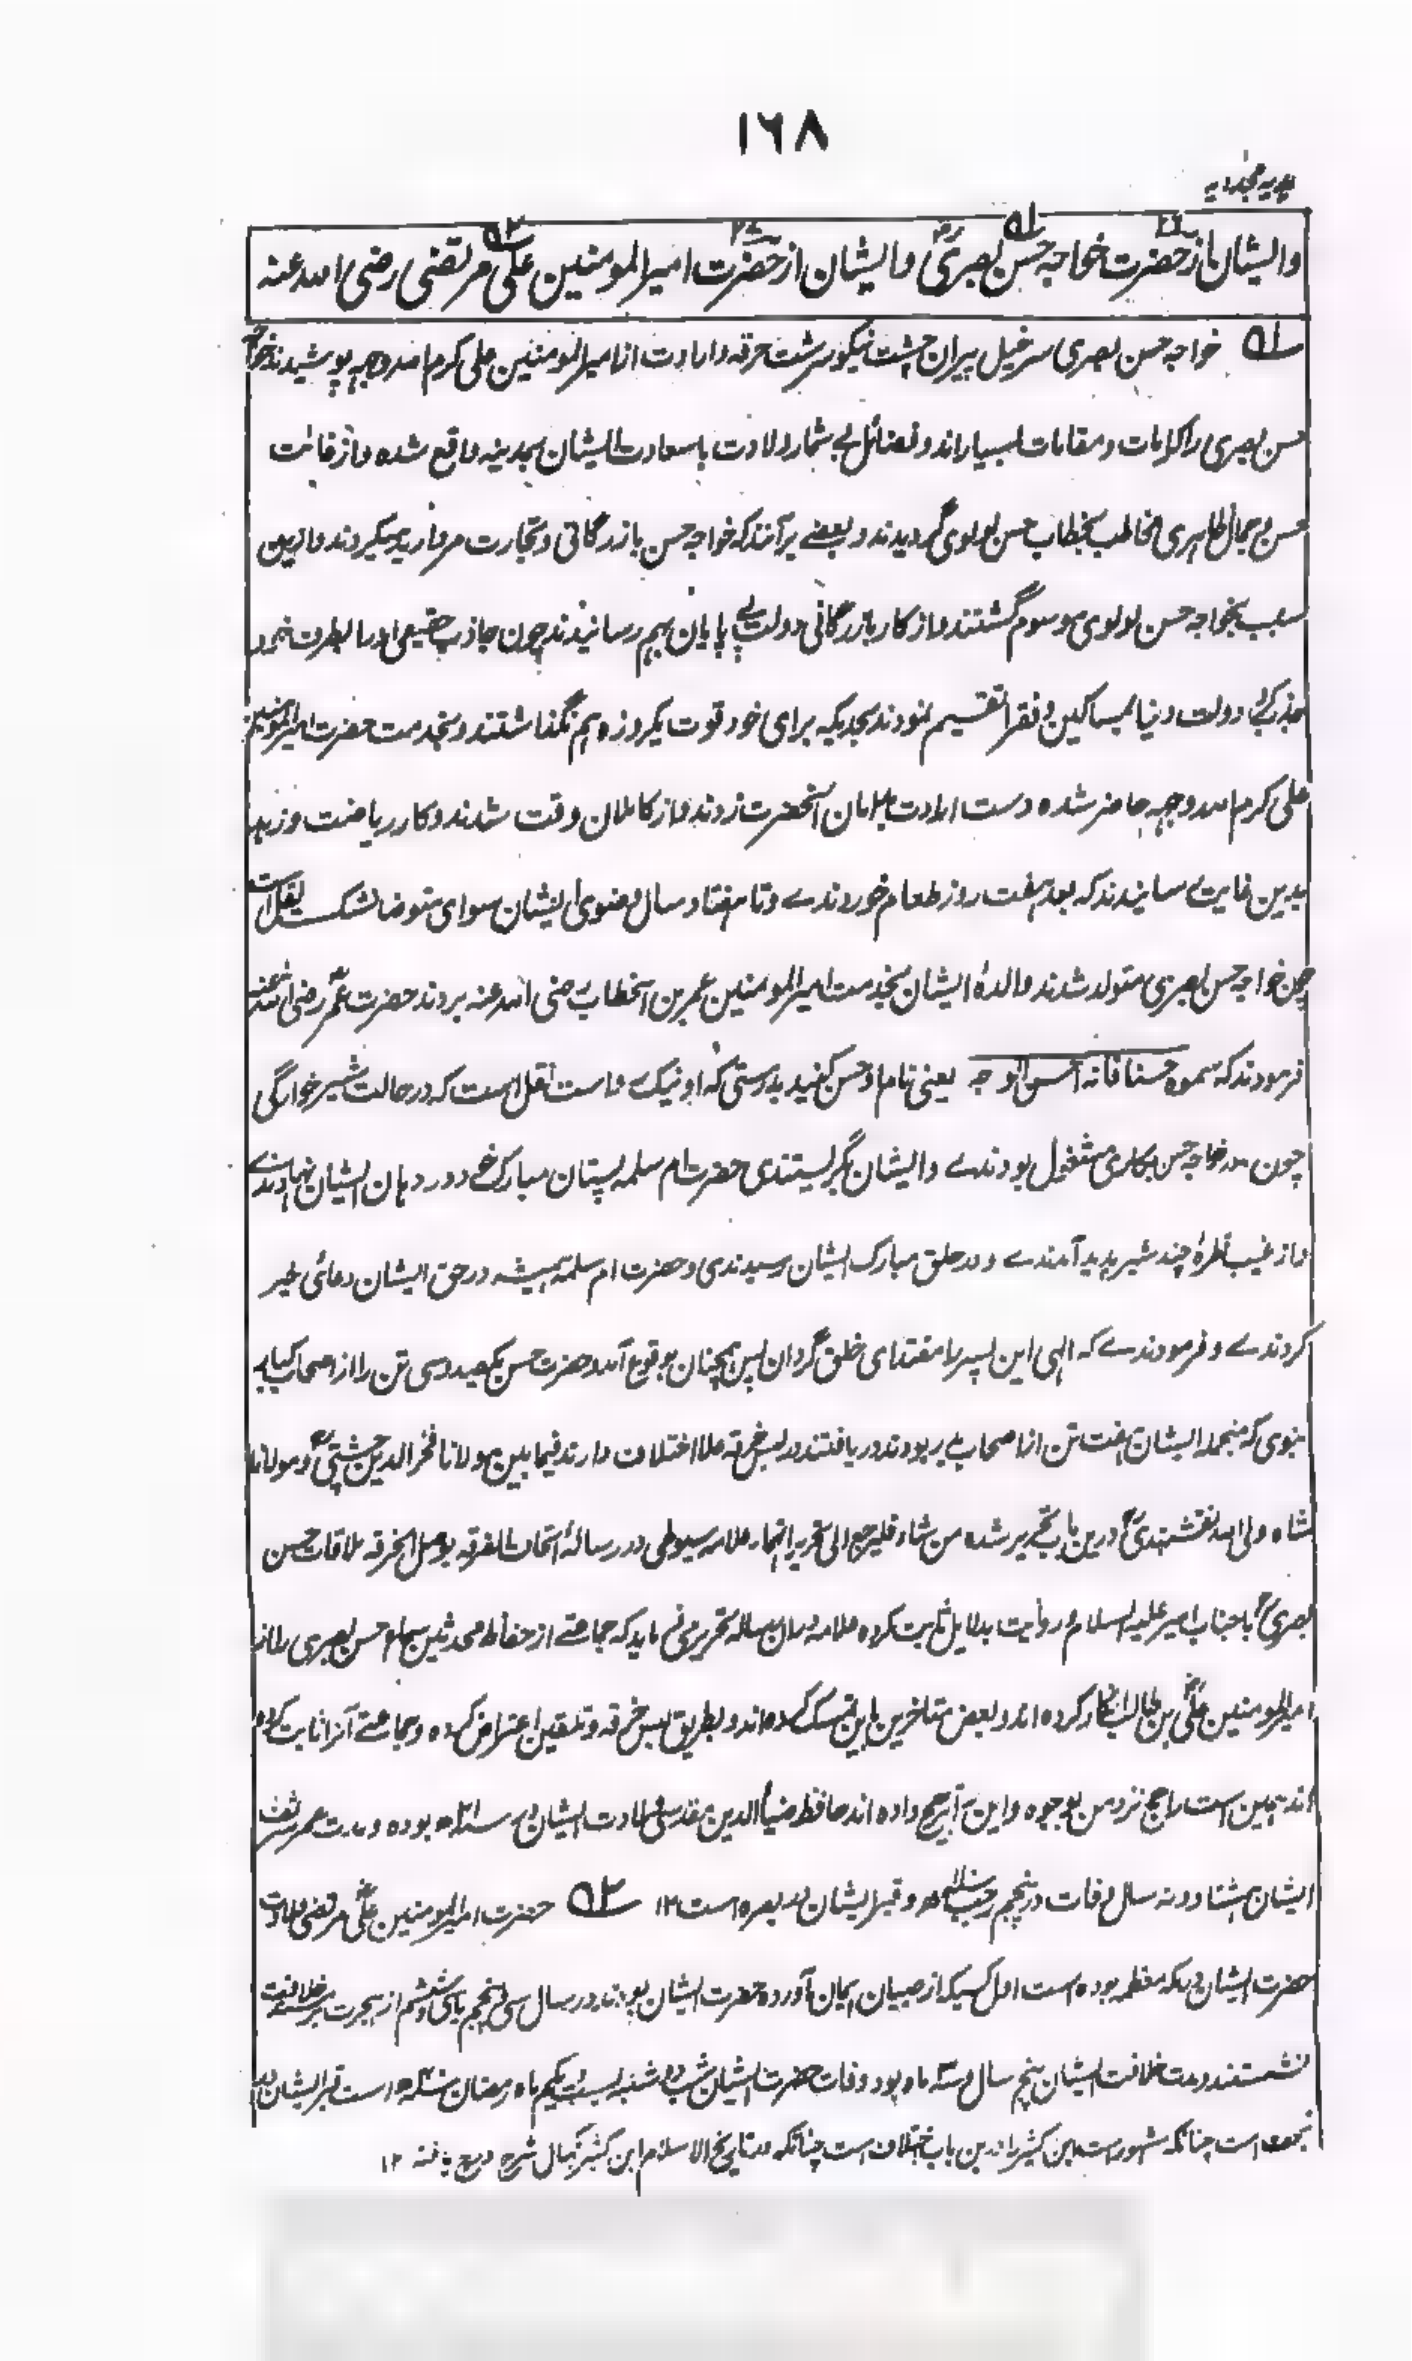 ۱۶۸
مجددیه
وایشان از حضرت خواجه حسن بصری و ایشان از حضرت امیرالمومنین علی مرتضی رضی الله عنه
خواجه حسن بصری سر خیل پیران چشت نیکو سرشت خرقه و ارادت از امیرالمومنین علی کرم الله وجهه پوشیدند خواجه
حسن بصری را کرامات و مقامات بسیاراند و فضائل بے شمار ولادت باسعادت ایشان بمدینه واقع شده و از غایت
حسن و جمال ظاهری مخاطب بخطاب حسن لولوی گردیدند و بعضے برآنند که خواجه حسن بازرگانی و تجارت مروارید میکردند و ازین
سبب بخواجه حسن لولوی موسوم گشتند و از کار بازرگانی دولت بے پایان بهم رسانیدند چون جاذب حقیقی او را بطرف خود
جذب کرد دولت دنیا بمساکین و فقرا تقسیم نمودند بحدیکه برای خود قوت یکروزه هم نگذاشتند و بخدمت حضرت امیرالمومنین
علی کرم الله وجهه حاضر شده دست ارادت بدامان آنحضرت زدند و از کاملان وقت شدند و کار ریاضت و زهد
بدین غایت رسانیدند که بعد هفت روز طعام خوردندے و تا هفتاد سال وضوی ایشان سوای متوضا نشکست نقل است
چون خواجه حسن بصری متولد شدند والدهٔ ایشان بخدمت امیرالمومنین عمر بن الخطاب رضی الله عنه بردند حضرت عمر رضی الله عنه
فرمودند که سموه حسنا فانه احسن الوجه یعنی نام او حسن کنید بدرستی که او نیک رو است نقل است که در حالت شیر خوارگی
چون مادر خواجه حسن بکاری مشغول بودندے و ایشان بگریستندی حضرت ام سلمه پستان مبارک خود در دهان ایشان نهادندے
و از غیب قطرهٔ چند شیر پدید آمدے و در حلق مبارک ایشان رسیدندی و حضرت ام سلمه همیشه در حق ایشان دعائی خیر
کردندے و فرمودندے که الهی این پسر را مقتدای خلق گردان پس همچنان بوقوع آمد و حضرت حسن یکصد و سی تن را از اصحاب کبار
نبوی که منجمله ایشان هفت تن از اصحاب بدر بودند دریافتند در لبس خرقه علما اختلاف دارند فیما بین مولانا فخرالدین چشتی و مولانا
شاه ولی الله نقشبندی درین باب تحریر شده من شاء فلیرجع الی تحریراتهما علامه سیوطی در رسالهٔ اتحاف الفرقه بوصل الخرقه ملاقات حسن
بصری با جناب امیر علیه السلام و روایت بدلایل ثابت کرده علامه دران رساله تحریر می فرماید که جماعتے از حفاظ محدثین سماع حسن بصری را از
امیرالمومنین علی بن ابی طالب انکار کرده اند و بعض متاخرین باین تمسک کرده اند و بطریق لبس خرقه و تلقین اعتراض کرده و جماعتے آنرا ثابت کرده
اند همین است راجح نزد من بوجوه و این را ترجیح داده اند حافظ ضیاء الدین مقدسی ولادت ایشان در سنه ۲۱ ه بوده و مدت عمر شریف
ایشان هشتاد و نه سال وفات در پنجم رجب و قبر ایشان در بصره است ۱۲ حضرت امیرالمومنین علی مرتضی ولادت
حضرت ایشان در مکه معظمه بوده است اول کسیکه از صبیان ایمان آورده حضرت ایشان بودند در سال سی و پنجم یا سی و ششم از هجرت بر مسند خلافت
نشستند و مدت خلافت ایشان پنج سال و سه ماه بود وفات حضرت ایشان شب دو شنبه بست و یکم ماه رمضان سنه ۴۰ ه است قبر ایشان در
نجف است چنانکه مشهور است ابن کثیر را درین باب اختلاف است چنانکه در تاریخ الاسلام ابن کثیر بکمال شرح درج یافته ۱۲